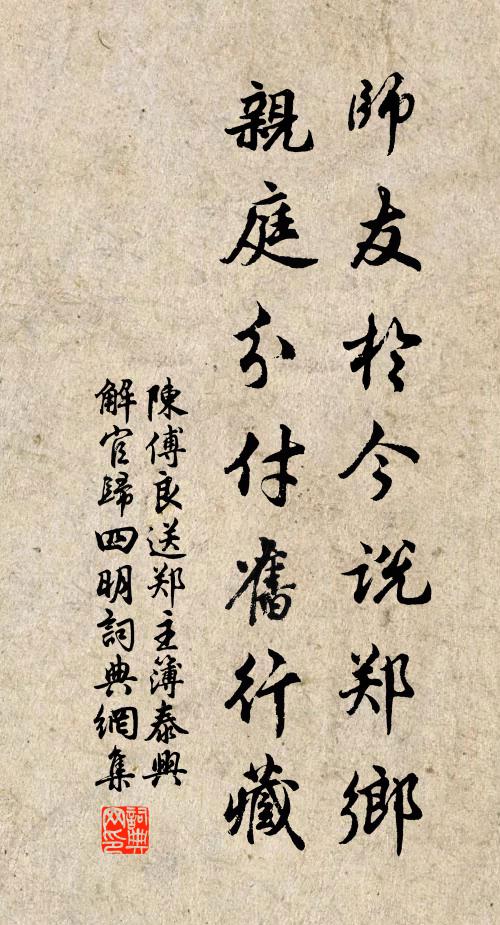 師友於今説郑鄉
親庭分付舊行藏
陳傅良送郑主簿泰興
解官歸四明詞典網集
詞典网印